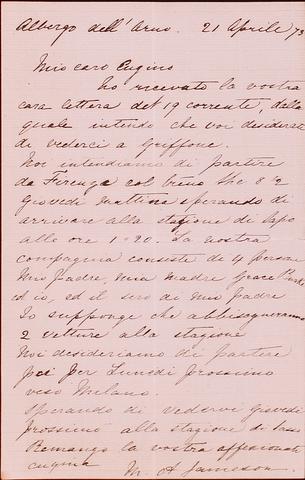 Albergo dell' Arno. 21 Aprile 73
Mio caro Eugino
ho ricevato la vostra
cara lettera del 19 corrente, dala
quale intendo che voi desiderate
di vederci a Griffone.
Noi intendiamo di partire
da Firenza col treno the 8½
Giovedi mattina sperando di
arrivare alla stagione di
alle ore 1-20. La nostra
compagnia consiste de 4 persone
Mio padre, mia madre Grace
ed io, ed il sero di mio padre
Io suppongo che abbisogneramo
2 vetture alla stagione
Noi desideriamo di partire
poi per Lunedi prossimo
verso Milano.
Sperando di vedervi Giovedi
prossimo alla stagione di
Remango la vostra affesionata
cugina M. A Jameson.